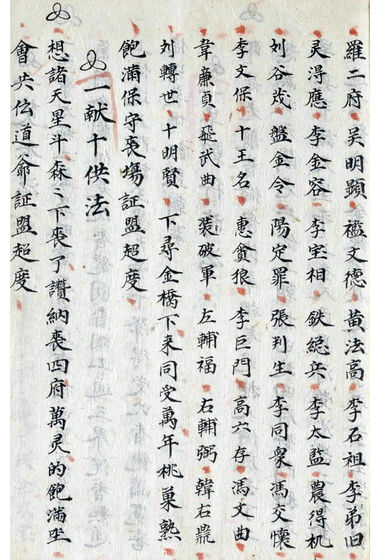 羅二府吴明顕褴文德黄法高李石祖李弟曰
灵淂應李金容李宝相鉄総兵李太监農得机
刘谷茂盤金令陽定罪張判生李同衆馮交懷
李文保十王名惠貪狼李巨門高六存馮文曲
韋廉貞飛武曲裝破軍左輔福右輔弼韓右
刘轉世十明賢下尋金橋下来同受萬年桃菓熟
飽滿保守丧塲証盟超度
一献十供法
想諸天星斗森〻下丧了讃納丧四府萬灵的飽滿坐
會共伝道爺証盟超度